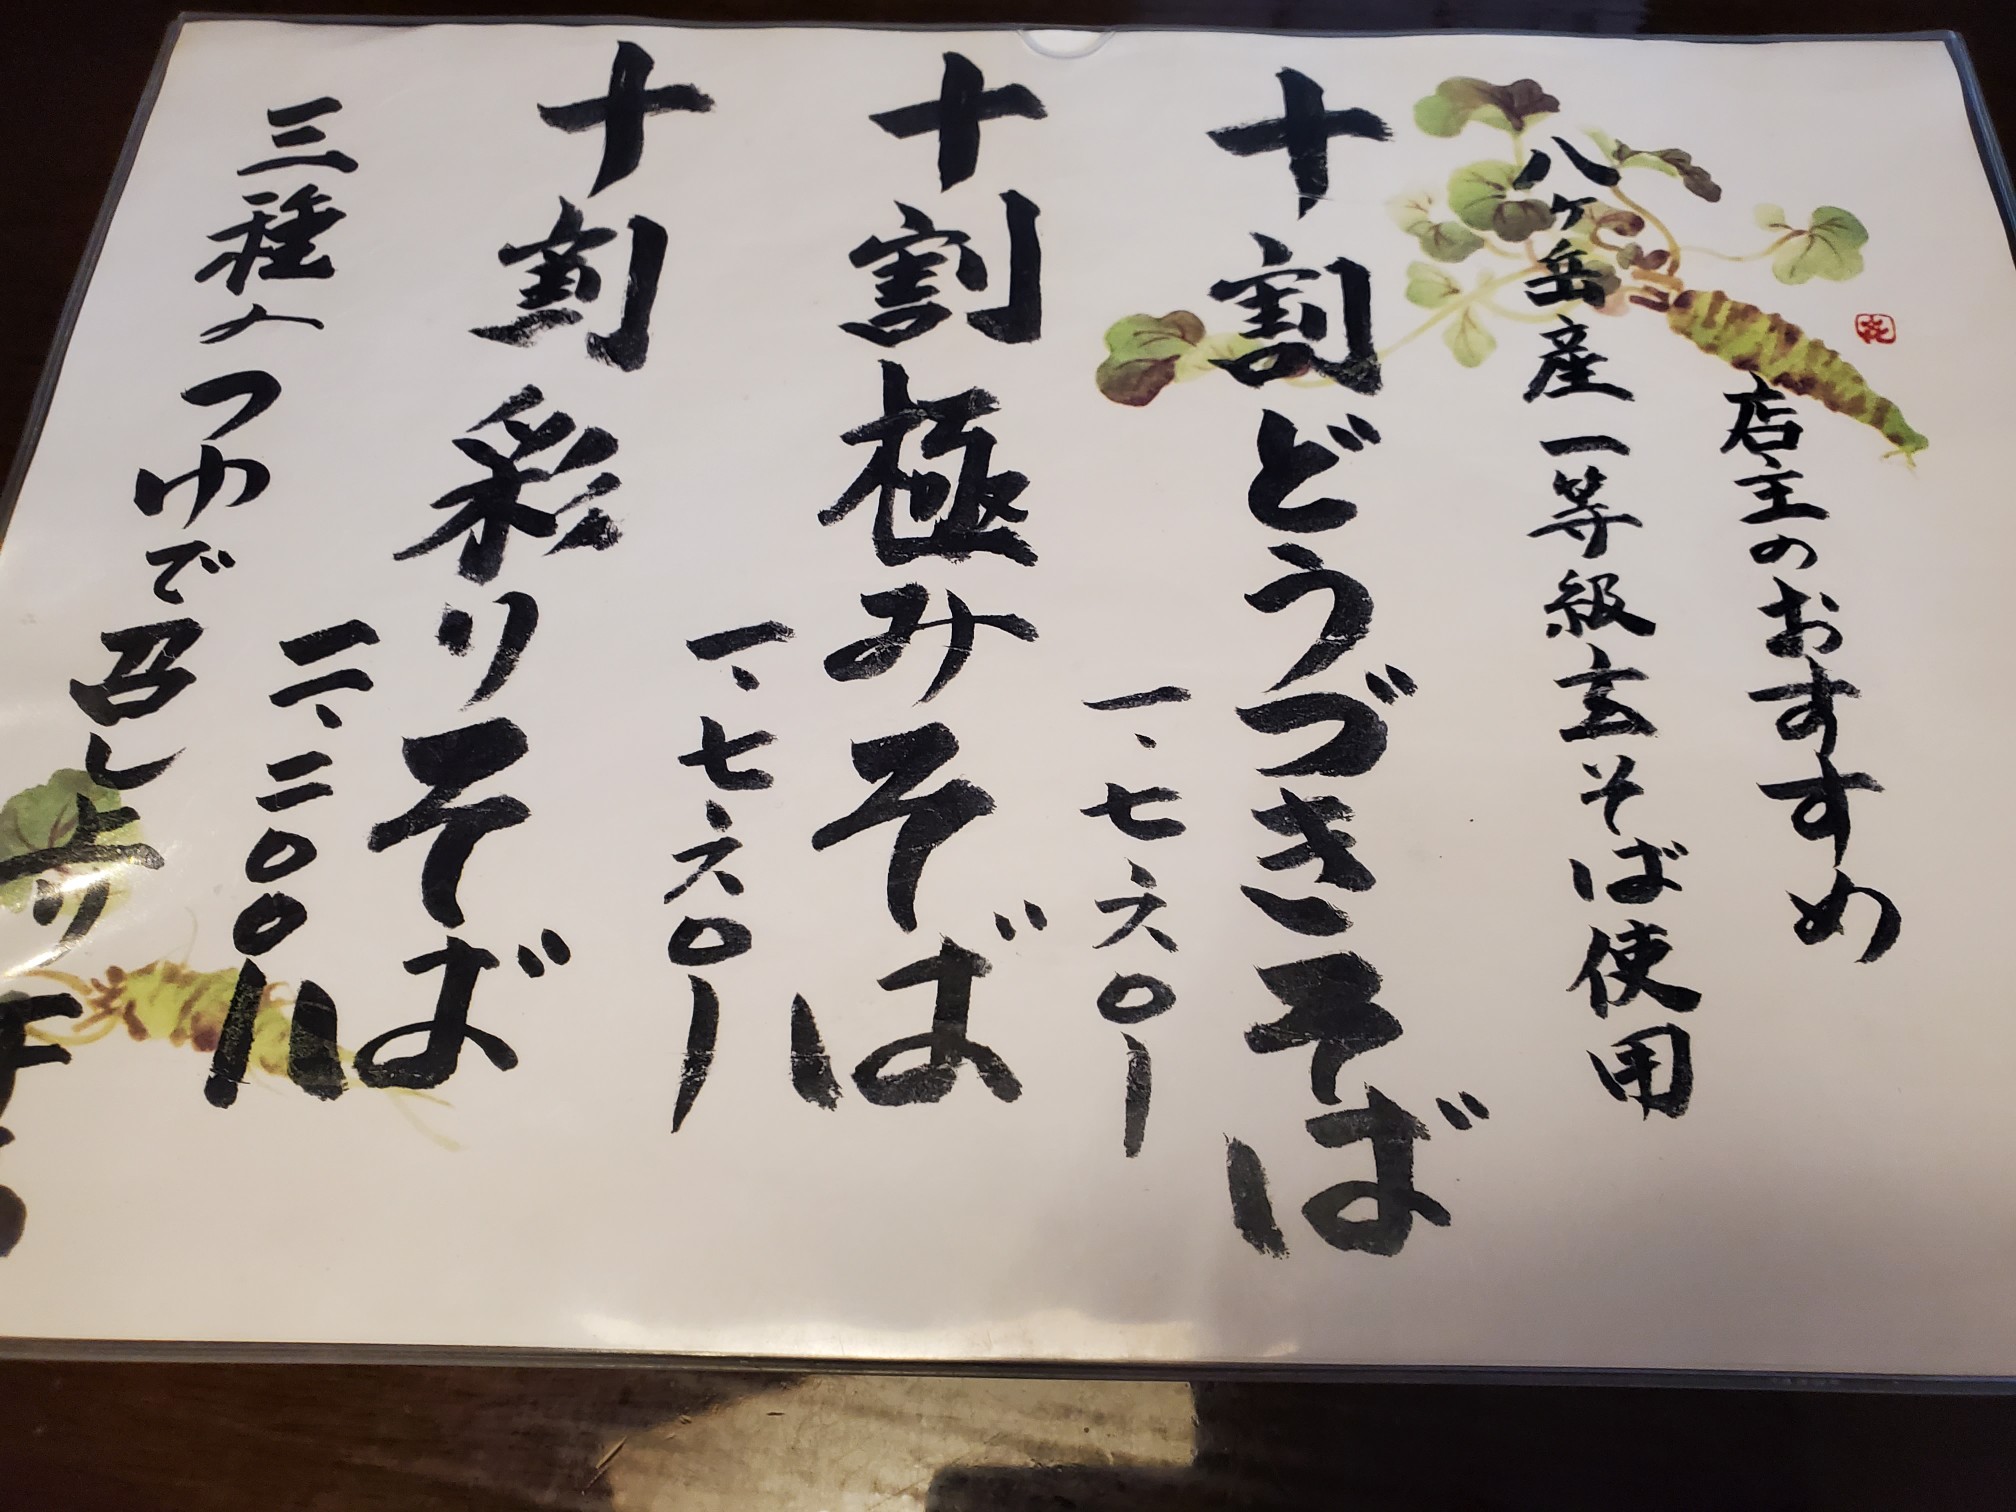 店主のおすすめ
八ヶ岳産一等級玄そば使用
十割どうづきそば
一、七六〇ー
十割極みそば
一、七六〇ー
十割彩りそば
二、二〇〇ー
三種のつゆで召し上り下さい